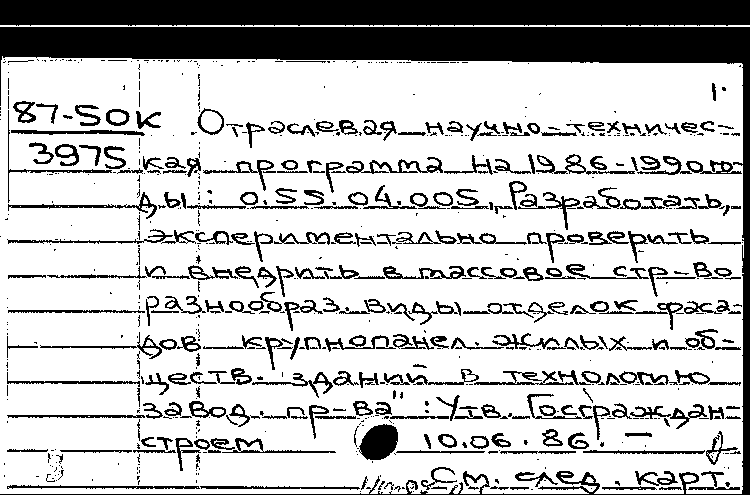 1.
87-50К Отраслевая научно-техничес-
3975 кая программа на 1986-1990 го-
ды: 0.55.04.005, „Разработать,
экспериментально проверить
и внедрить в массовое стр-во
разнообраз. виды отделок фаса-
дов крупнопанел. жилых и об-
ществ. зданий в технологию
завод. пр-ва": Утв. Госграждан-
строем 10.06.86. –
См. след. карт.